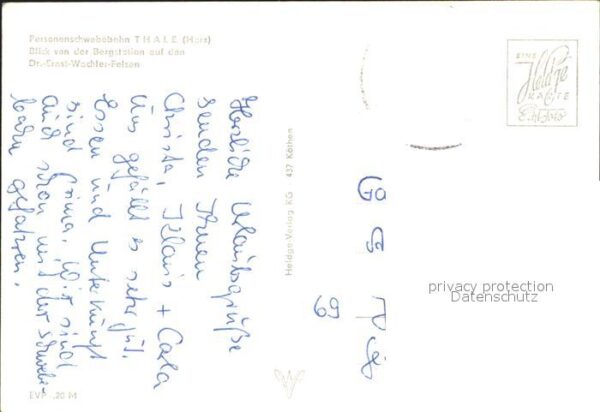 Personenschwebebahn THALE (Harz)
Blick von der Bergstation auf den
Dr.-Ernst-Wachler-Felsen
EINE
Heldge
KARTE
Echt Foto
Herzliche Urlaubsgrüße
senden Ihnen
Christa, Klaus + Carla
Uns gefällt es sehr gut.
Essen und Unterkunft
sind prima. Wir sind
auch schon mit der Schwebe-
bahn gefahren.
Heldge-Verlag KG 437 Köthen
privacy protection
Datenschutz
EVP -,20 M